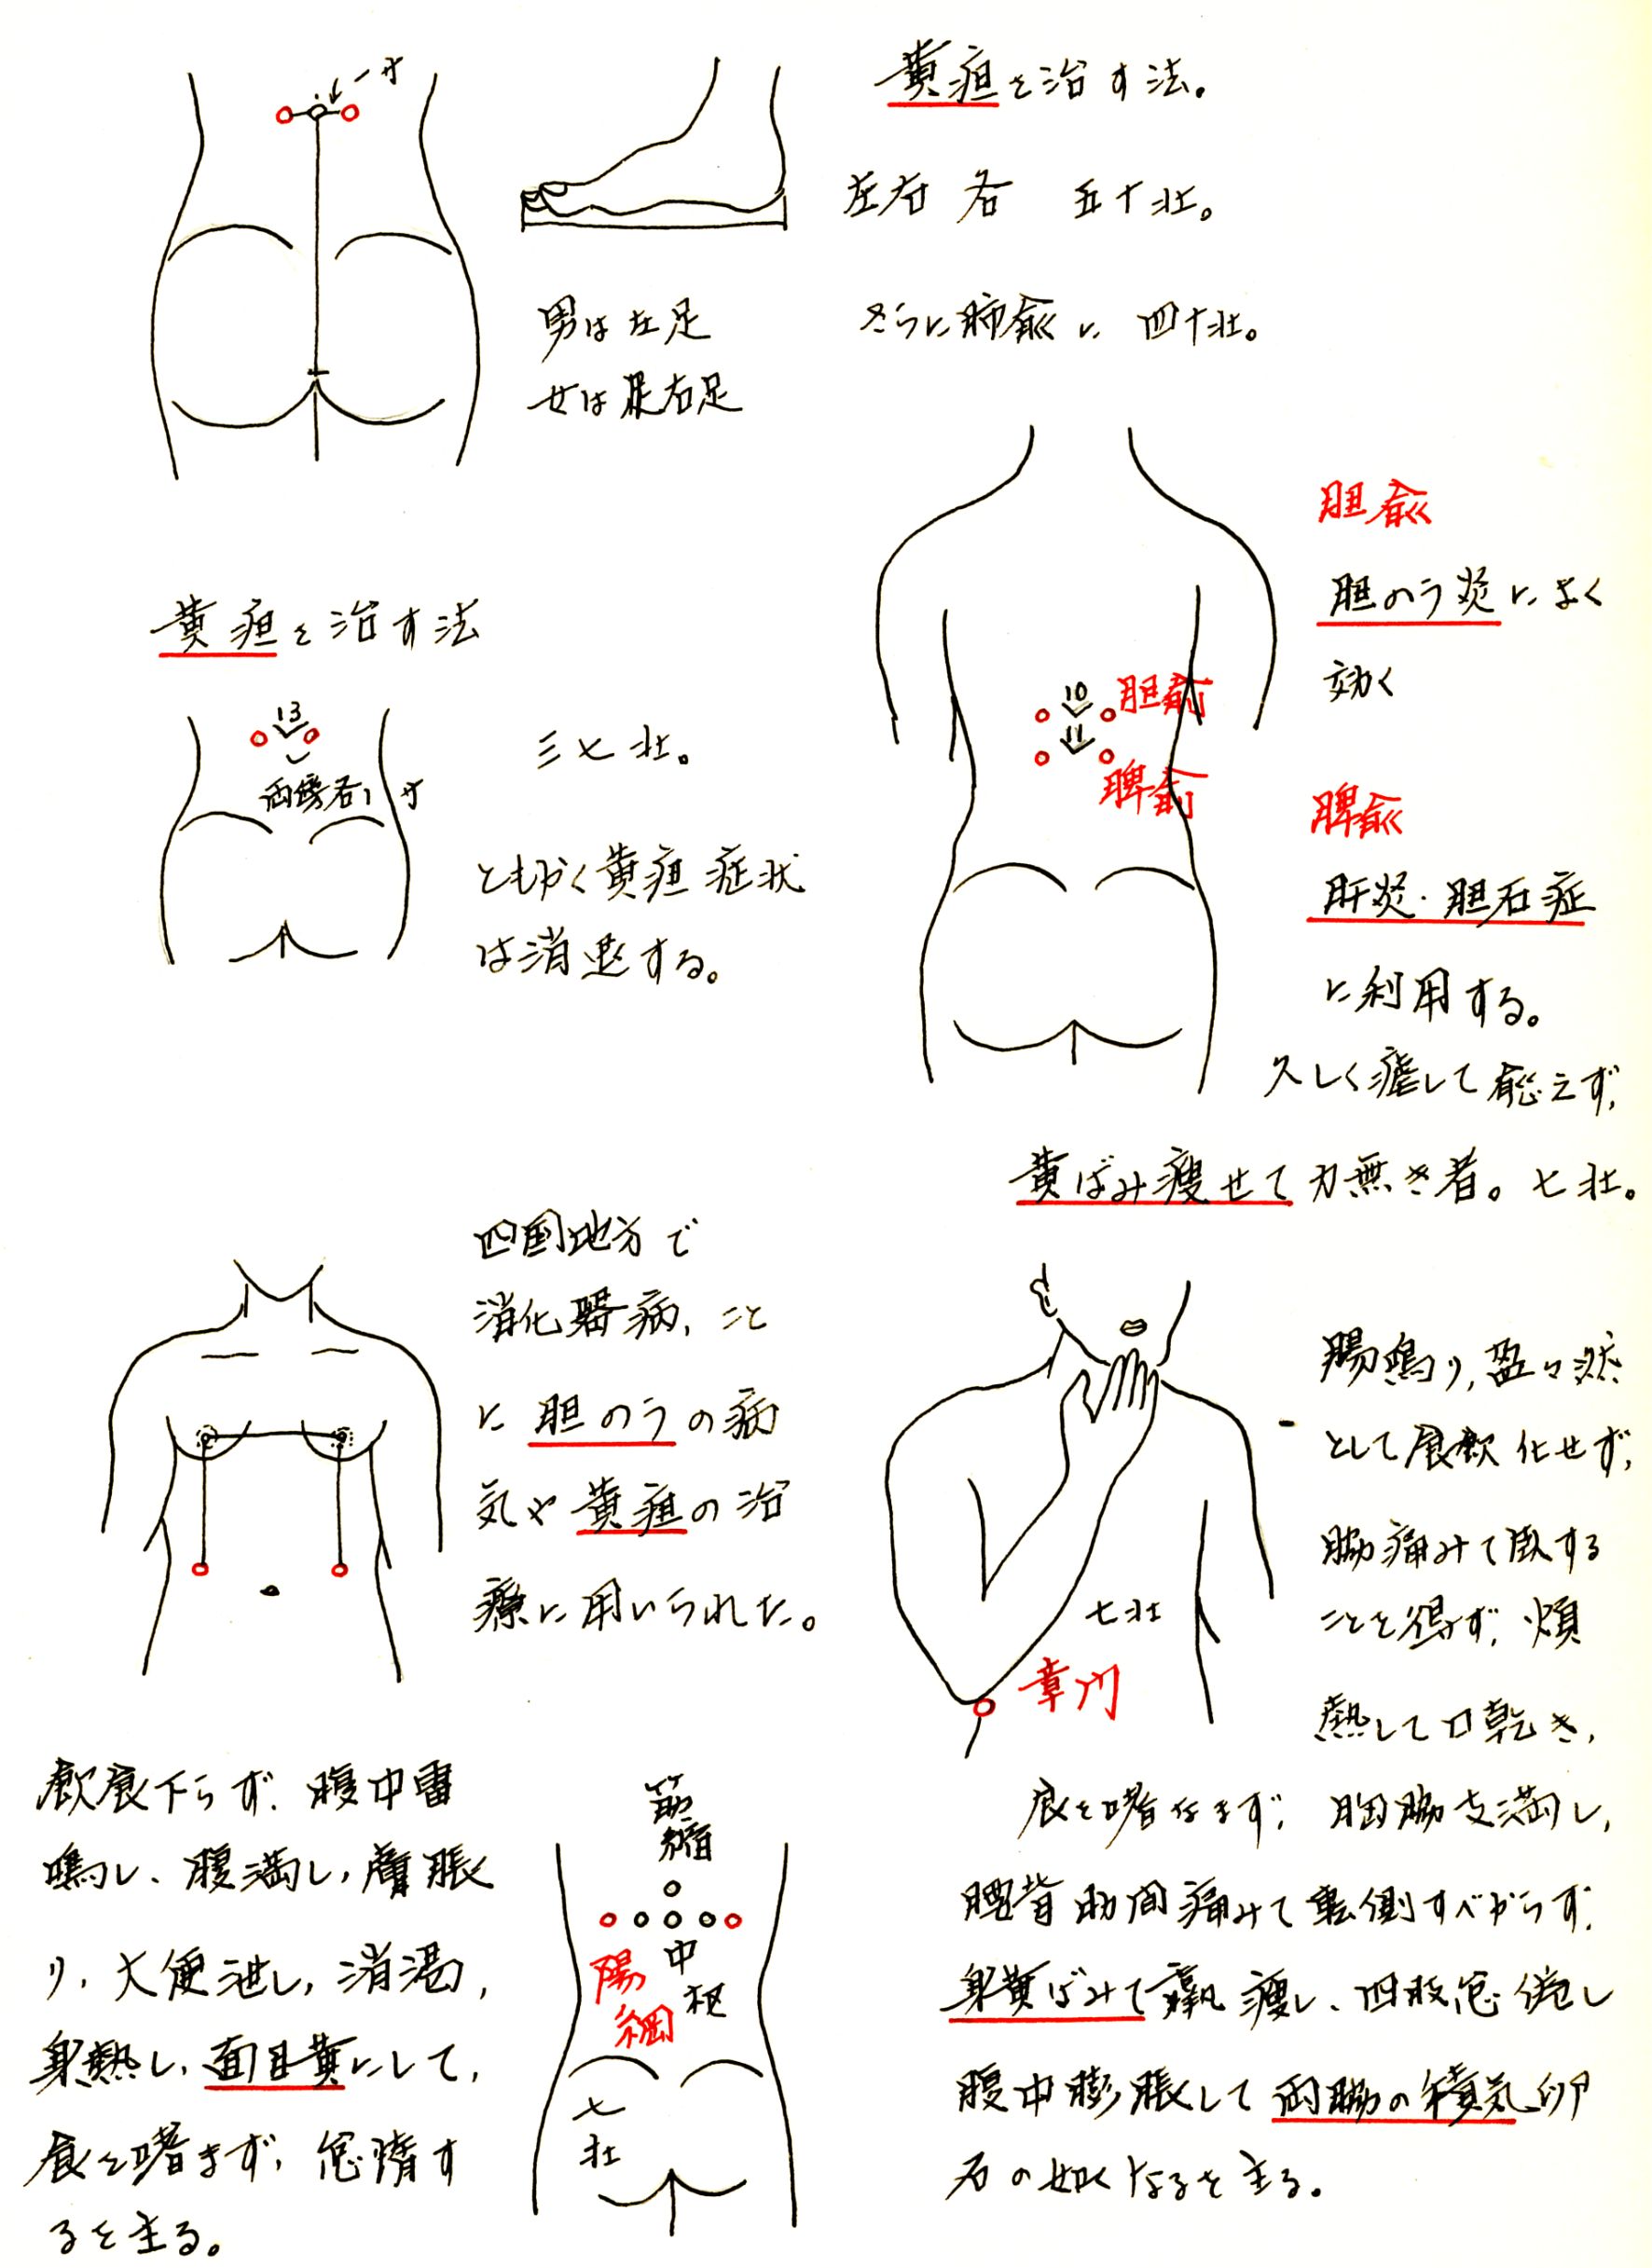 一寸
黄疸を治す法。
左右 各 五十壮。
さらに肺兪に 四十壮。
男は左足
女は足右足
黄疸を治す法
13
両傍各1寸
三七壮。
ともかく黄疸症状
は消退する。
胆兪
胆のう炎によく
効く
10
胆兪
11
脾兪
脾兪
肝炎・胆石症
に利用する。
久しく瘧して愈えず、
黄ばみ痩せて力無き者。七壮。
四国地方で
消化器病、こと
に胆のうの病
気や黄疸の治
療に用いられた。
腸鳴り、盈々然
として食飲化せず、
脇痛みて臥する
ことを得ず、煩
熱して口乾き、
食を嗜なまず、胸脇支満し、
腰背肋間痛みて転側すべからず、
身黄ばみて羸痩し、四肢怠惰し
腹中膨脹して両脇の積気卵
石の如くなるを主る。
七壮
章門
飲食下らず、腹中雷
鳴し、腹満し、膚脹
り、大便泄し、消渇、
身熱し、面目黄にして、
食を嗜まず、怠惰す
るを主る。
筋縮
中枢
陽綱
七壮